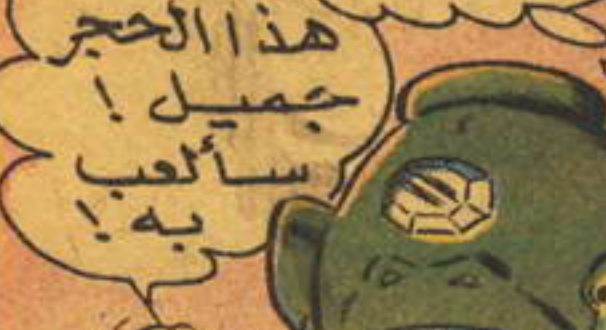 هذا الحجر
جميل !
سألعب
به !